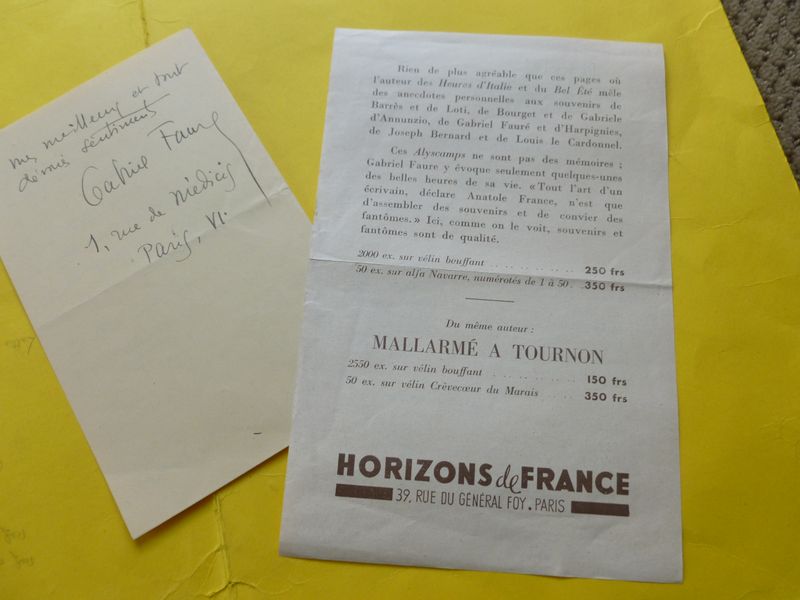 mes meilleurs et tout
dévoués sentiments
Gabriel Faure
1, rue de Médicis
Paris, VI.
Rien de plus agréable que ces pages où
l'auteur des Heures d'Italie et du Bel Été mêle
des anecdotes personnelles aux souvenirs de
Barrès et de Loti, de Bourget et de Gabriele
d'Annunzio, de Gabriel Fauré et d'Harpignies,
de Joseph Bernard et de Louis le Cardonnel.
Ces Alyscamps ne sont pas des mémoires ;
Gabriel Faure y évoque seulement quelques-unes
des belles heures de sa vie. « Tout l'art d'un
écrivain, déclare Anatole France, n'est que
d'assembler des souvenirs et de convier des
fantômes. » Ici, comme on le voit, souvenirs et
fantômes sont de qualité.
2000 ex. sur vélin bouffant . . . . . . . . . . . 250 frs
50 ex. sur alfa Navarre, numérotés de 1 à 50. . 350 frs
Du même auteur :
MALLARMÉ A TOURNON
2550 ex. sur vélin bouffant . . . . . . . . . . . 150 frs
50 ex. sur vélin Crèvecœur du Marais . . . . . 350 frs
HORIZONS de FRANCE
39, RUE DU GÉNÉRAL FOY . PARIS